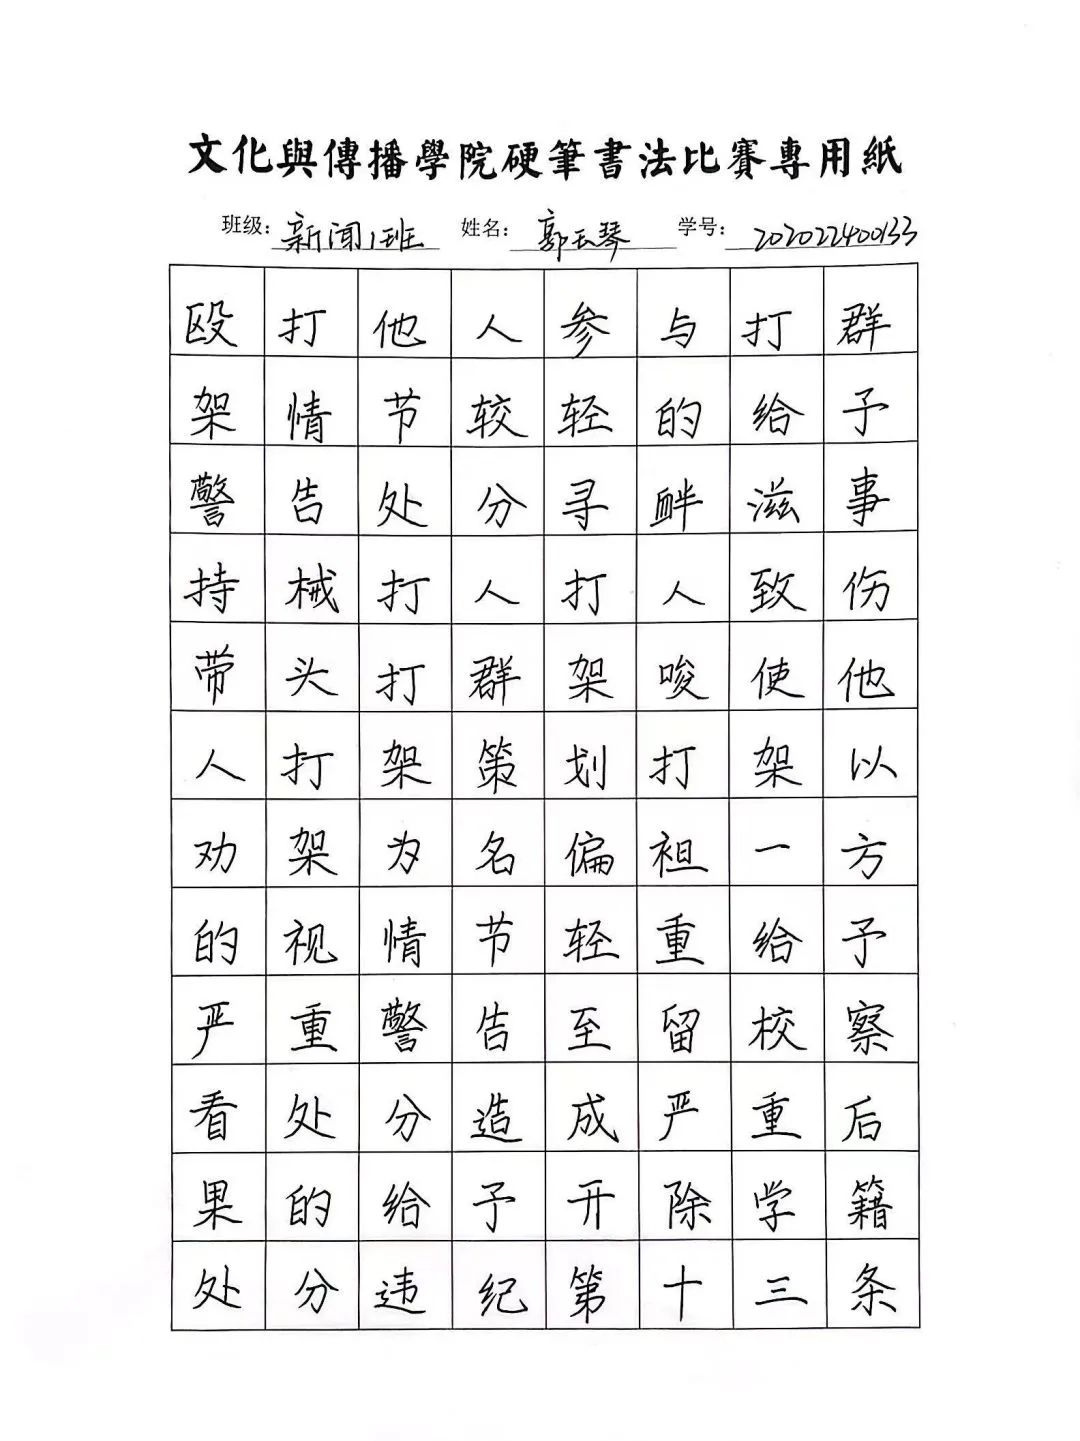 文化與傳播學院硬筆書法比賽專用紙
班级：新闻1班 姓名：郭玉琴 学号：202022400133
殴打他人参与打群
架情节较轻的给予
警告处分寻衅滋事
持械打人打人致伤
带头打群架唆使他
人打架策划打架以
劝架为名偏袒一方
的视情节轻重给予
严重警告至留校察
看处分造成严重后
果的给予开除学籍
处分违纪第十三条